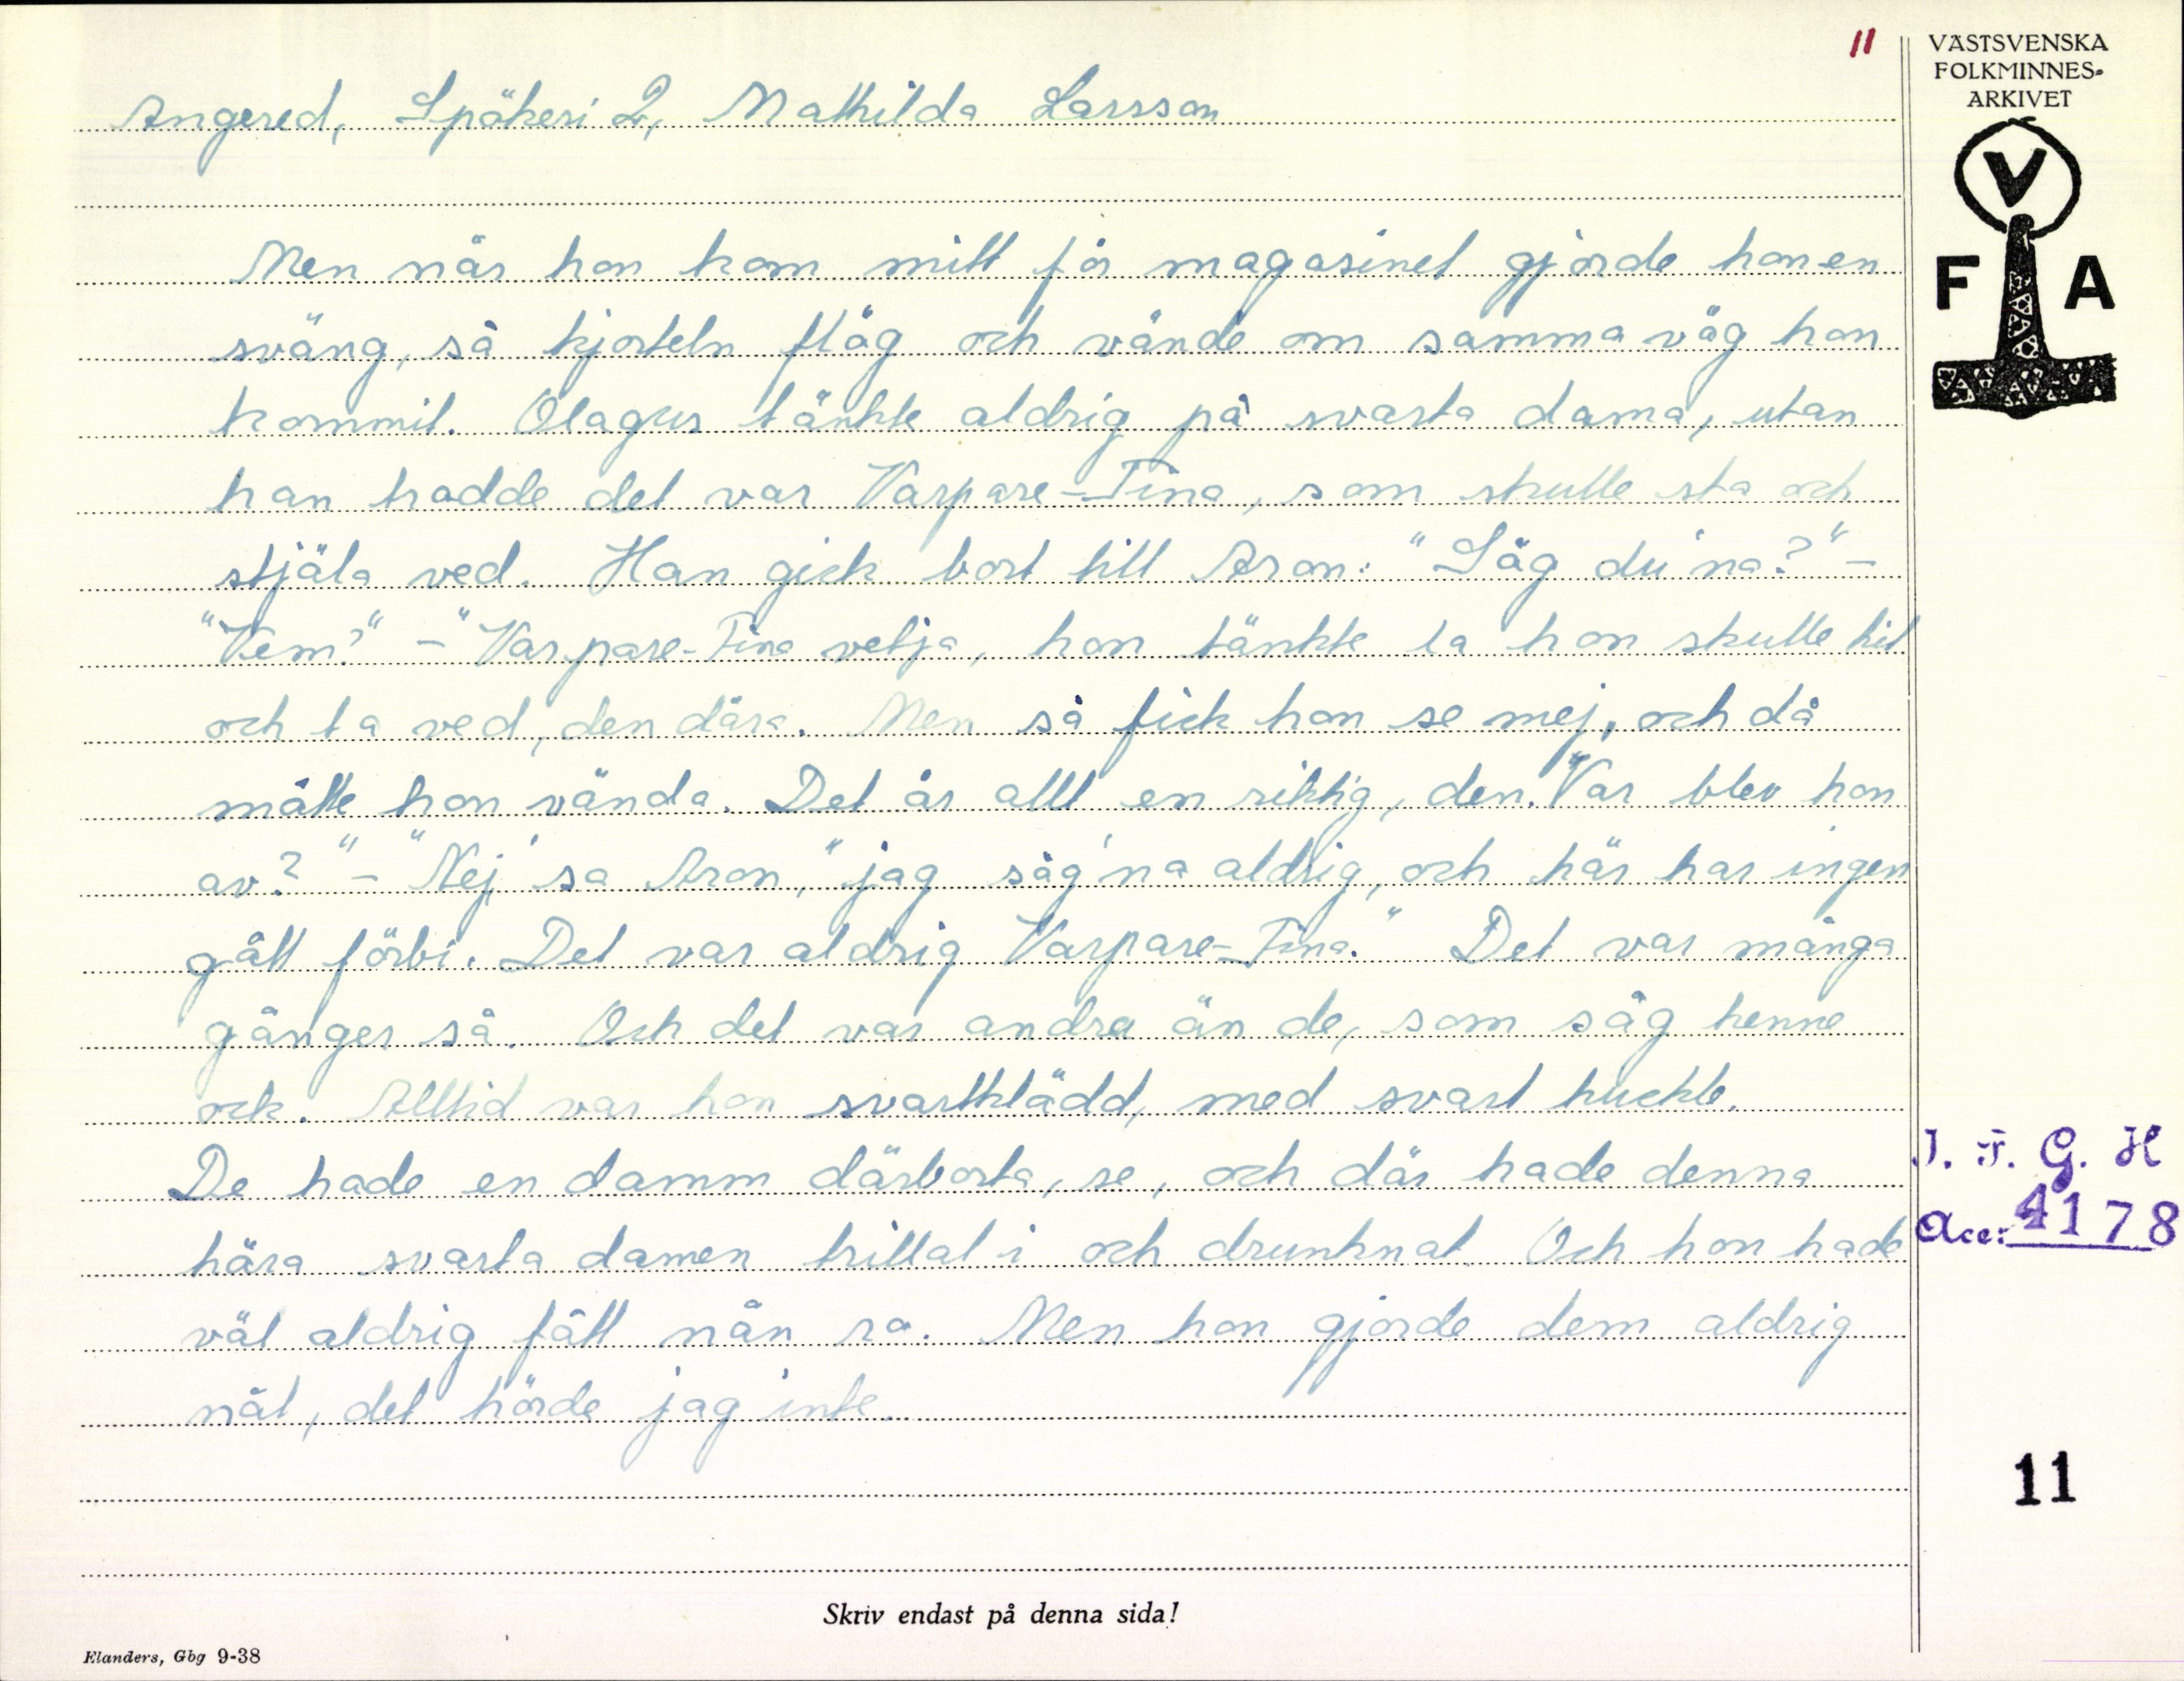 11
VÄSTSVENSKA
FOLKMINNES-
ARKIVET
V
F A
Angered, Spökeri 2, Mathilda Larsson
Men när hon kom mitt för magasinet gjorde hon en
sväng, så kjorteln flög och vände om samma väg hon
kommit. Olagus tänkte aldrig på svarta dama, utan
han trodde det var Varpare-Tina, som skulle sta och
stjäla ved. Han gick bort till Aron: "Såg du'na?" –
"Vem?" – "Varpare-Tina vetja, hon tänkte ta hon skulle hit
och ta ved, den dära. Men så fick hon se mej, och då
måtte hon vända. Det är allt en riktig, den. Var blev hon
av?" – "Nej" sa Aron, "jag såg'na aldrig, och här har ingen
gått förbi. Det var aldrig Varpare-Tina." Det var många
gånger så. Och det var andra än de, som såg henne
ock. Alltid var hon svartklädd, med svart huckle.
De hade en damm därborta, se, och där hade denna
hära svarta damen trillat i och drunknat. Och hon hade
väl aldrig fått nån ro. Men hon gjorde dem aldrig
nåt, det hörde jag inte.
I. F. G. H
Acc: 4178
11
Skriv endast på denna sida!
Elanders, Gbg 9-38